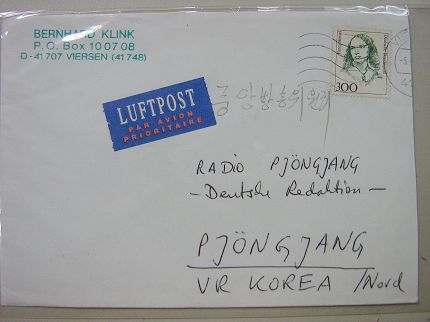 BERNHARD KLINK
P.O. Box 100708
D-41707 VIERSEN (41748)
300
LUFTPOST
PAR AVION
PRIORITAIRE
중앙방송위원회
RADIO PJÖNGJANG
- Deutsche Redaktion -
PJÖNGJANG
VR KOREA /Nord